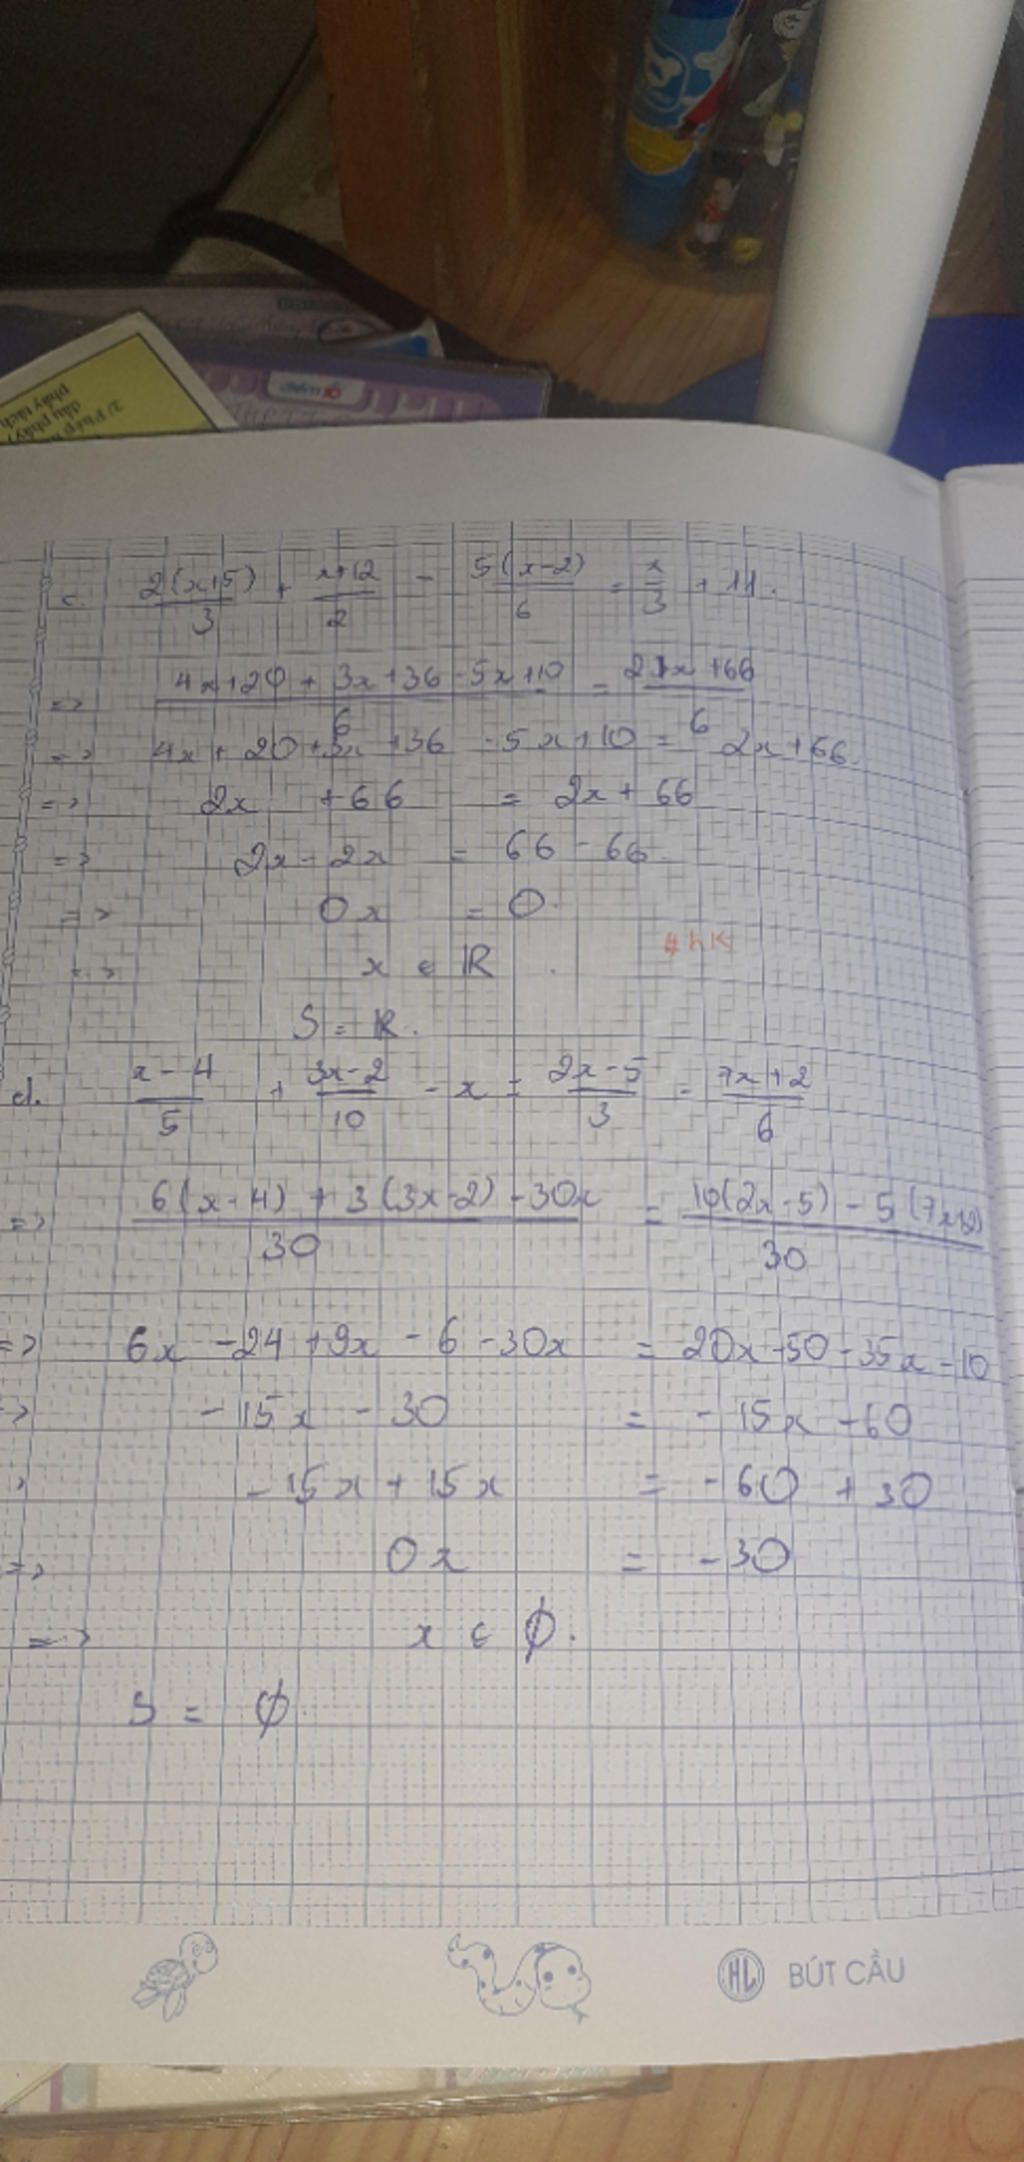 2) Phép
dấu phẩy
phẩy tách
c. 2(x+5)/3 + x+12/2 - 5(x-2)/6 = x/3 + 11.
=> 4x+20 + 3x+36 -5x+10/6 = 2x+66/6
=> 4x + 20 + 3x +36 -5x+10 = 2x+66.
=> 2x +66 = 2x + 66
=> 2x - 2x = 66 - 66.
=> 0x = 0.
=> x ∈ R .
#hK
S = R.
d. x-4/5 + 3x-2/10 - x = 2x-5/3 - 7x+2/6
=> 6(x-4) + 3(3x-2) -30x/30 = 10(2x-5) - 5(7x+2)/30
=> 6x -24 +9x -6 -30x = 20x -50 -35x -10
=> -15x -30 = -15x -60
-15x + 15x = -60 + 30
=> 0x = -30
=> x ∈ ∅.
S = ∅
HL BÚT CẦU